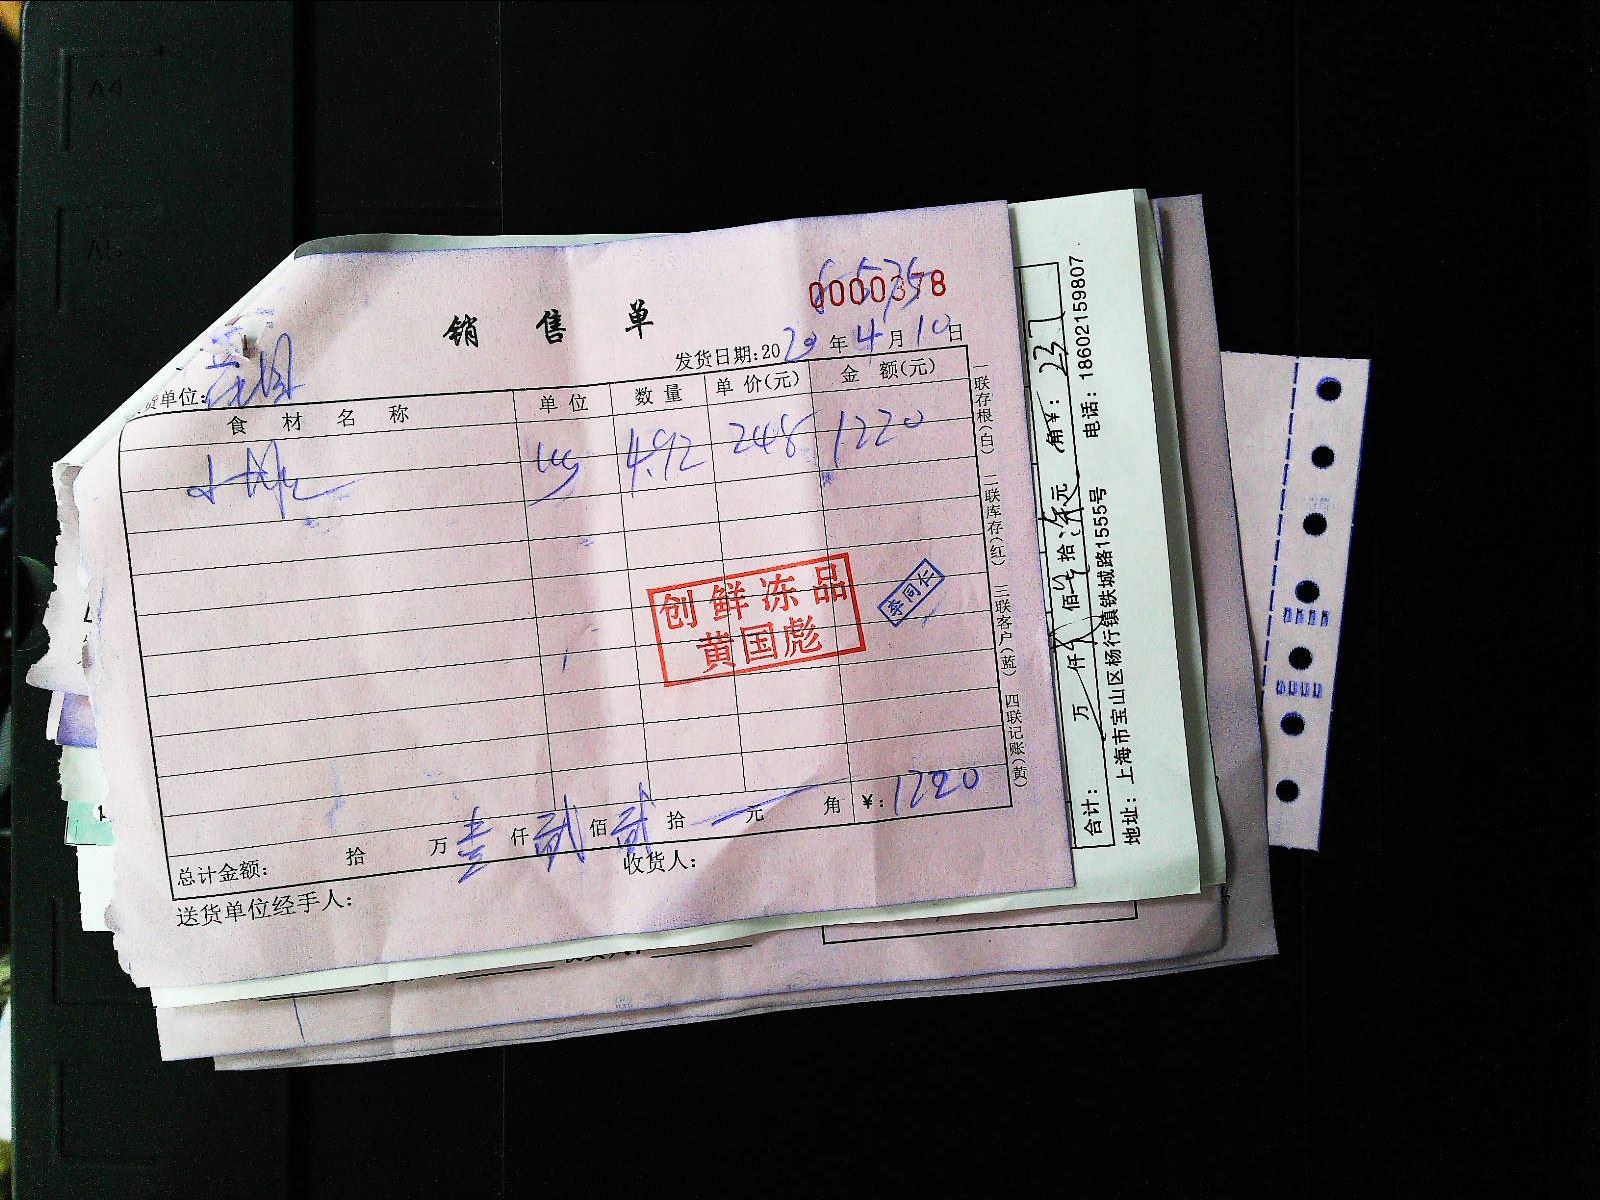 销售单
0000378
6535
发货日期:2020年4月10日
货单位:
食材名称 单位 数量 单价(元) 金额(元)
kg 4.92 248 1220
创鲜冻品
黄国彪
李同长
总计金额: 拾 万 壹 仟 贰 佰 贰 拾 元 角 ¥: 1220
送货单位经手人: 收货人:
一联存根(白) 二联库存(红) 三联客户(蓝) 四联记账(黄)
合计: 万 仟 佰 拾 元 角 ¥: 237
地址: 上海市宝山区杨行镇铁城路1555号 电话: 18602159807
A4